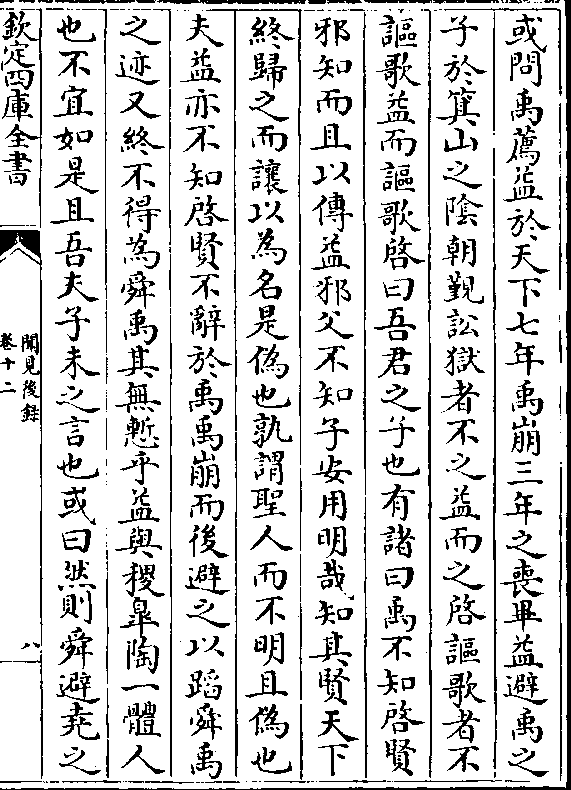 或問禹薦益於天下七年禹崩三年之喪畢益避禹之
子於箕山之陰朝覲訟獄者不之益而之啓謳歌者不
謳歌益而謳歌啓曰吾君之子也有諸曰禹不知啓賢
邪知而且以傳益邪父不知子安用明哉知其賢天下
終歸之而讓以為名是偽也孰謂聖人而不明且偽也
夫益亦不知啓賢不辭於禹禹崩而後避之以蹈舜禹
之迹又終不得為舜禹其無慙乎益與稷臯陶一體人
也不宜如是且吾夫子未之言也或曰然則舜避堯之
欽定四庫全書
聞見後録
卷十二
八